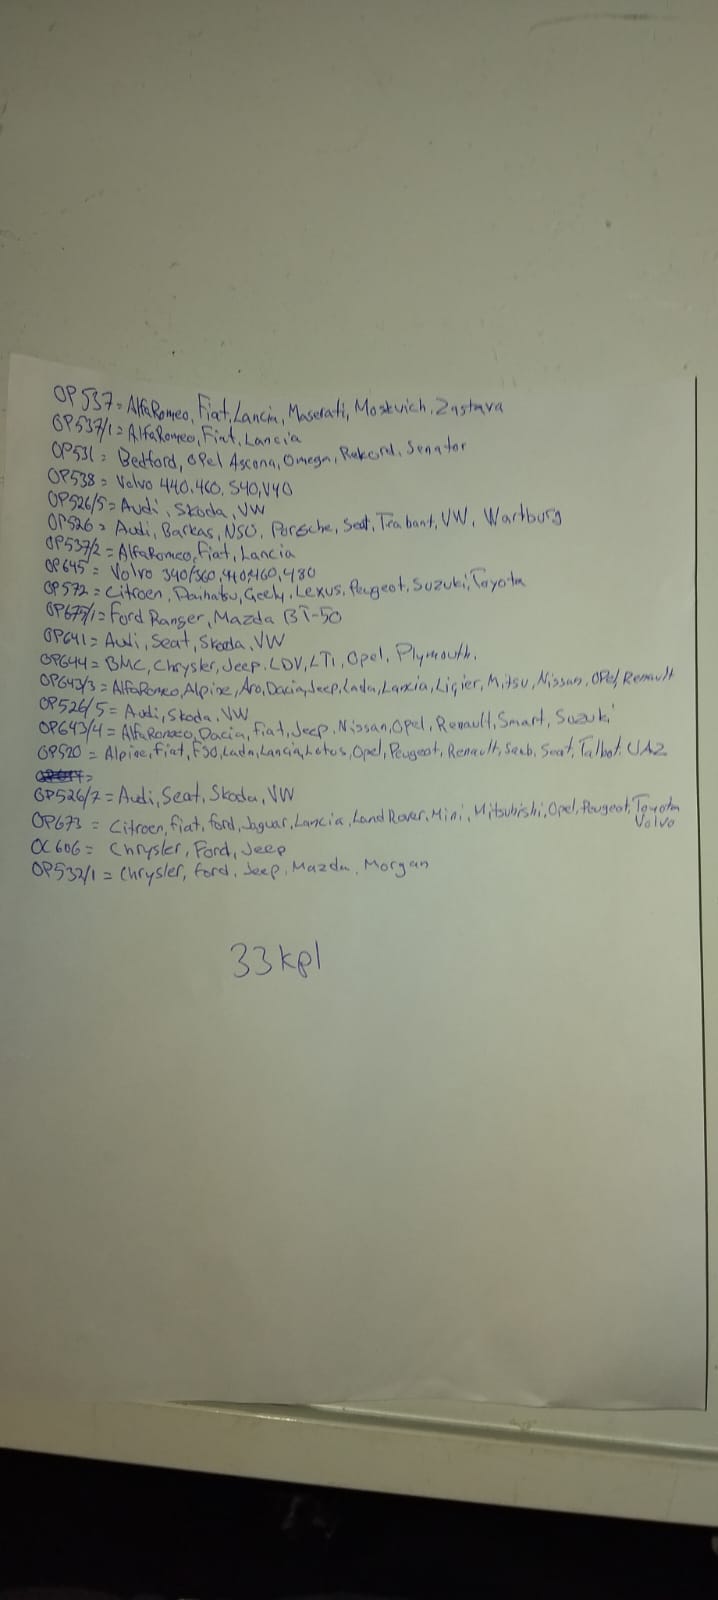 OP537=AlfaRomeo, Fiat, Lancia, Maserati, Moskvich, Zastava
OP537/1=AlfaRomeo, Fiat, Lancia
OP531= Bedford, Opel Ascona, Omega, Rekord, Senator
OP538= Volvo 440,460,S40,V40
OP526/5=Audi, Skoda, VW
OP526= Audi, Barkas, NSU, Porsche, Seat, Trabant, VW, Wartburg
OP537/2=AlfaRomeo, Fiat, Lancia
OP645= Volvo 340/360,440,460,480
OP572=Citroen, Daihatsu, Geely, Lexus, Peugeot, Suzuki, Toyota
OP675/1=Ford Ranger, Mazda BT-50
OP641= Audi, Seat, Skoda, VW
OP644= BMC, Chrysler, Jeep, LDV, LTI, Opel, Plymouth.
OP643/3=AlfaRomeo, Alpine, Aro, Dacia, Jeep, Lada, Lancia, Ligier, Mitsu, Nissan, Opel, Renault
OP526/5=Audi, Skoda, VW
OP643/4=AlfaRomeo, Dacia, Fiat, Jeep, Nissan, Opel, Renault, Smart, Suzuki
OP520= Alpine, Fiat, FSO, Lada, Lancia, Lotus, Opel, Peugeot, Renault, Saab, Seat, Talbot, UAZ
OP526/7=Audi, Seat, Skoda, VW
OP673= Citroen, fiat, ford, Jaguar, Lancia, Land Rover, Mini, Mitsubishi, Opel, Peugeot, Toyota
Volvo
OC606= Chrysler, Ford, Jeep
OP532/1= Chrysler, ford, Jeep, Mazda, Morgan
33kpl